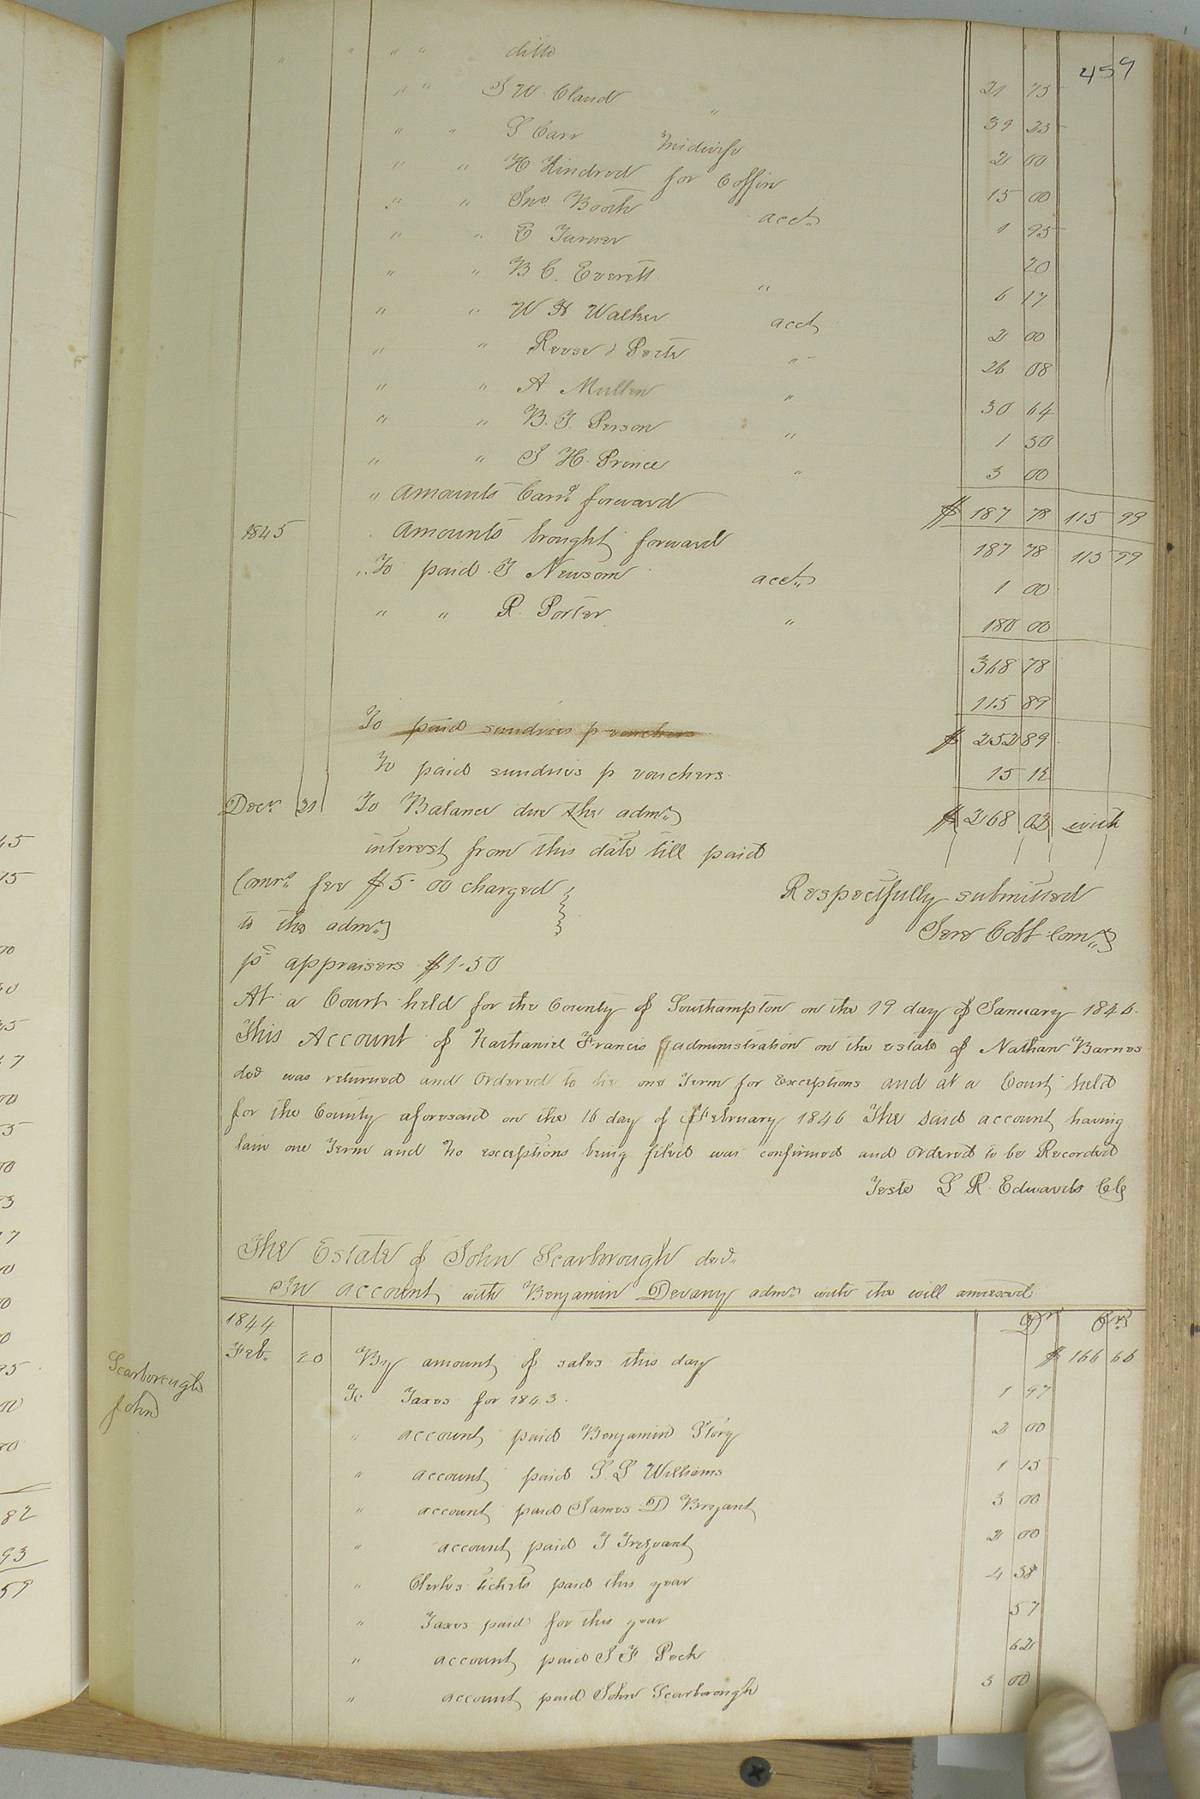 459
" " " ditto
" " S W Claud " 21 75
" " S Carr Midwife 39 25
" " H Kindred for Coffin 2 00
" " Jno Booth acct 15 00
" " E Turner 1 95
" " B C. Everett " 20
" " W H Walker acct 6 17
" " Reese & Porter " 2 00
" " A Mullen " 26 08
" " B. T. Person " 30 64
" " S H. Prince " 1 50
3 00
" Amounts Carrd forward $ 187 78 115 99
1845 Amounts brought forward 187 78 115 99
" To paid T Newsom acct 1 00
" " R. Porter " 180 00
368 78
115 89
To paid sundries p vouchers $ 252 89
To paid sundries p vouchers 15 12
Decr 31 To Balance due the admr $ 268 02 with
interest from this date till paid
Comrs fee $5.00 charged
to the admr
pd appraisers $1.50
Respectfully submitted
Jere Cobb Comr
At a Court held for the County of Southampton on the 19 day of January 1846
This Account of Nathaniel Francis administration on the estate of Nathan Barnes
decd was returned and ordered to lie one Term for exceptions and at a Court held
for the County aforesaid on the 16 day of February 1846 The said account having
lain one Term and no exceptions being filed was confirmed and ordered to be Recorded
Teste L R. Edwards Clk
The Estate of John Scarborough decd
In account with Benjamin Devany admr with the will annexed
1844 Dr Cr
Feb. 20 By amount of sales this day $ 166 66
Scarborough
John
To Taxes for 1843. 1 97
" account paid Benjamin Story 2 00
" account paid S. L Williams 1 15
" account paid James D Bryant 3 00
" account paid T Trezvant 2 00
" Clerks tickets paid this year 4 38
" Taxes paid for this year 57
" account paid S F Peck 62
" account paid John Scarborough 3 00